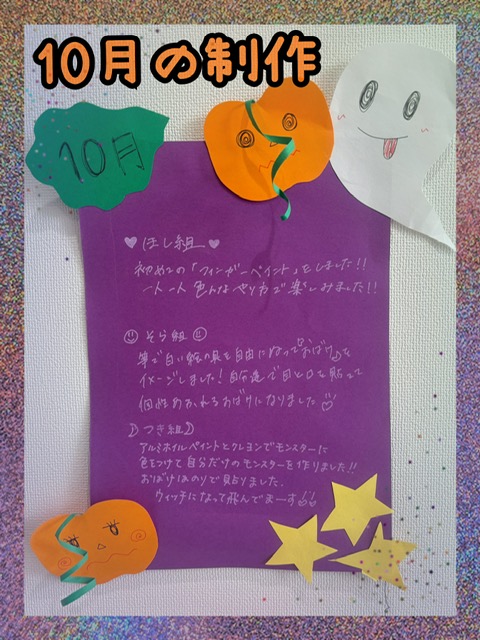 10月の制作
10月
♥ ほし組 ♥
初めての「フィンガーペイント」をしました!!
一人一人色んなやり方で楽しみました!!
そら組
筆で白い絵の具を自由にぬって"おばけ"を
イメージしました!自分達で目と口を貼って
個性あふれるおばけになりました
つき組
アルミホイルペイントとクレヨンでモンスターに
色をつけて自分だけのモンスターを作りました!!
おばけはのりで貼りました。
ウィッチになって飛んでまーす